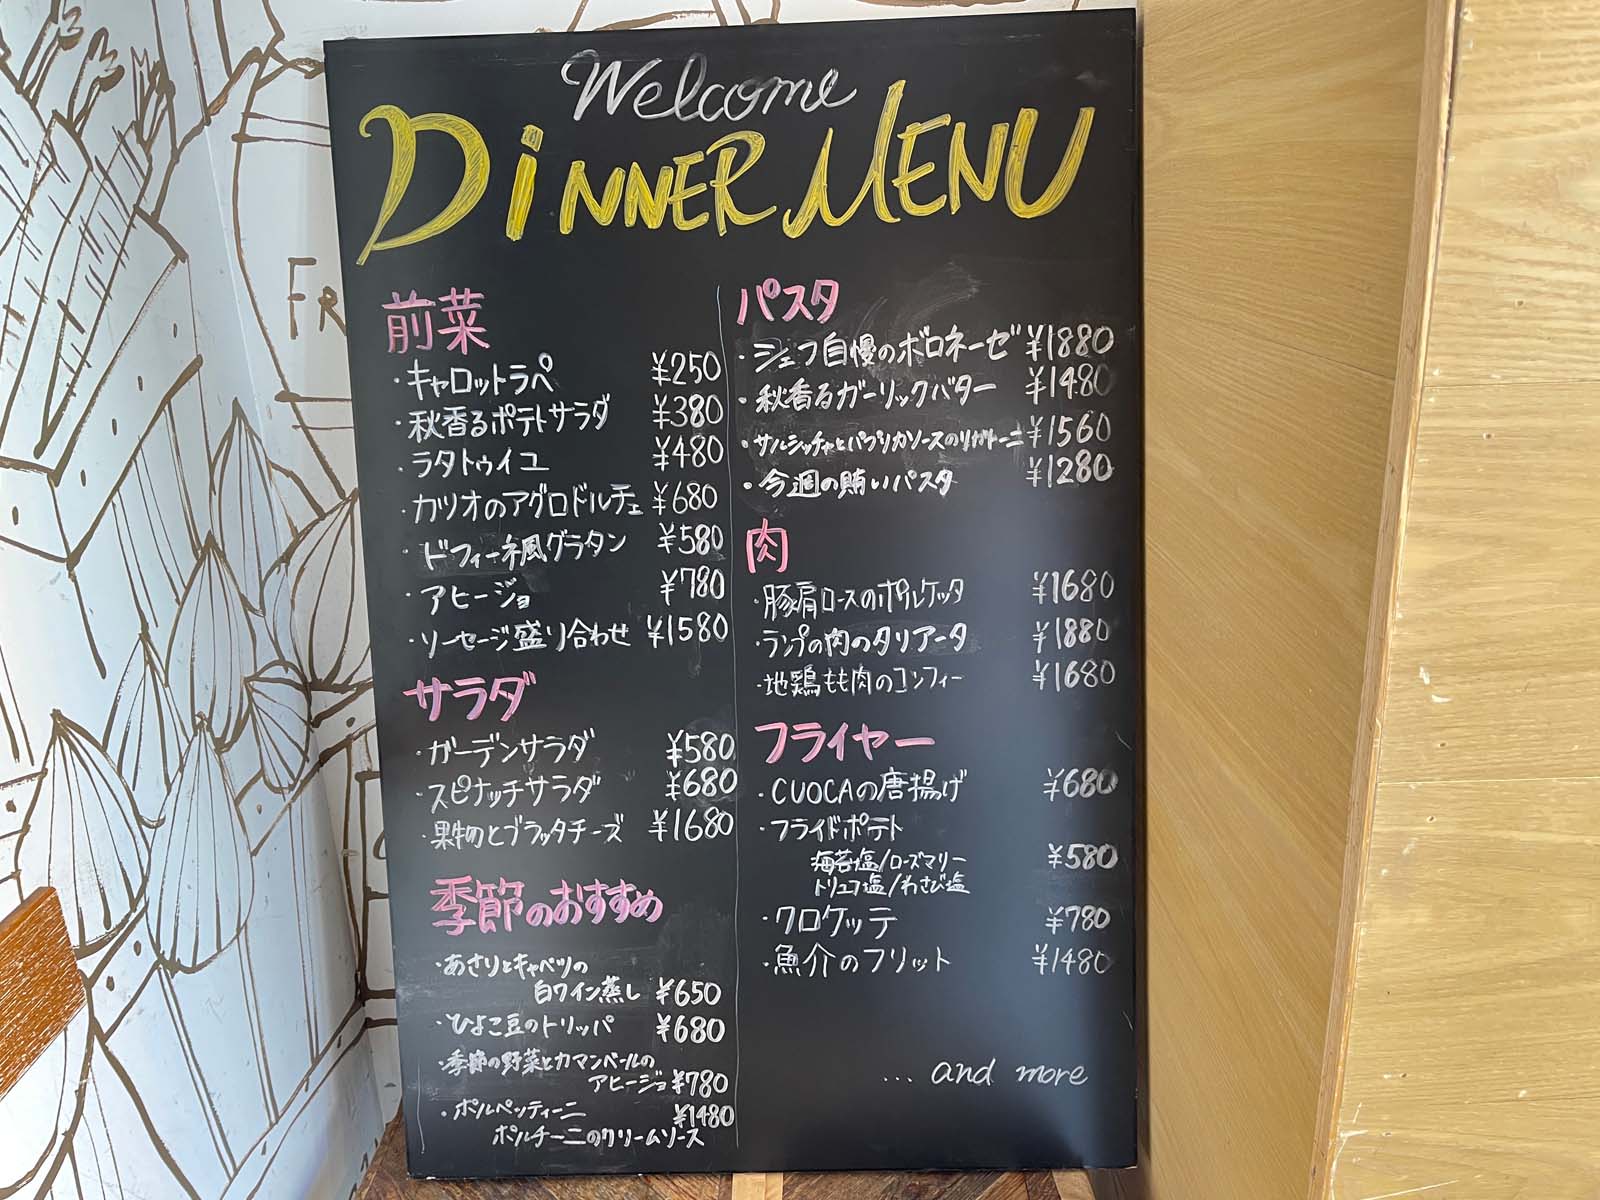 Welcome
DiNNER MENU
前菜
・キャロットラペ ¥250
・秋香るポテトサラダ ¥380
・ラタトゥイユ ¥480
・カツオのアグロドルチェ ¥680
・ドフィーネ風グラタン ¥580
・アヒージョ ¥780
・ソーセージ盛り合わせ ¥1580
サラダ
・ガーデンサラダ ¥580
・スピナッチサラダ ¥680
・果物とブラッタチーズ ¥1680
季節のおすすめ
・あさりとキャベツの
白ワイン蒸し ¥650
・ひよこ豆のトリッパ ¥680
・季節の野菜とカマンベールの
アヒージョ ¥780
・ポルペッティーニ ¥1480
ポルチーニのクリームソース
パスタ
・シェフ自慢のボロネーゼ ¥1880
・秋香るガーリックバター ¥1480
・サルシッチャとパプリカソースのリガトーニ ¥1560
・今週の賄いパスタ ¥1280
肉
・豚肩ロースのポルケッタ ¥1680
・ランプの肉のタリアータ ¥1880
・地鶏もも肉のコンフィー ¥1680
フライヤー
・CUOCAの唐揚げ ¥680
・フライドポテト
海苔塩/ローズマリー ¥580
トリュフ塩/わさび塩
・クロケッテ ¥780
・魚介のフリット ¥1480
... and more
FR